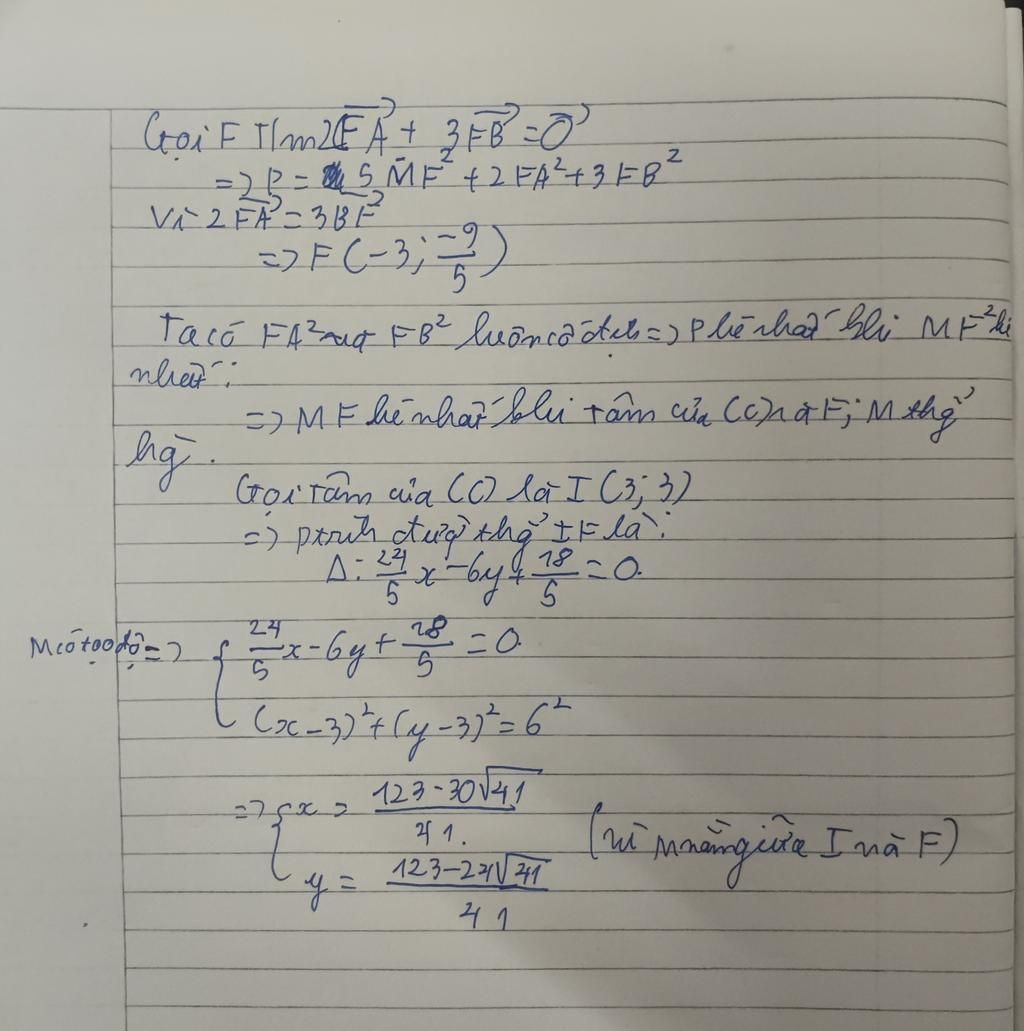 Gọi F T/m 2FA + 3FB = 0
=> P = 5 MF² + 2FA² + 3FB²
Vì 2FA = 3BF
=> F(-3; -9/5)
Ta có FA² và FB² luôn cố định => P bé nhất khi MF² bé
nhất:
=> MF bé nhất khi tâm của (C) và F; M thg
hg.
Gọi tâm của (C) là I(3; 3)
=> ptrình đườg thg IF là:
Δ: 24/5 x - 6y + 18/5 = 0.
M có toạ độ => { 24/5 x - 6y + 18/5 = 0.
(x - 3)² + (y - 3)² = 6²
=> { x = (123 - 30√41)/41.
y = (123 - 24√41)/41
(vì M nằm giữa I và F)